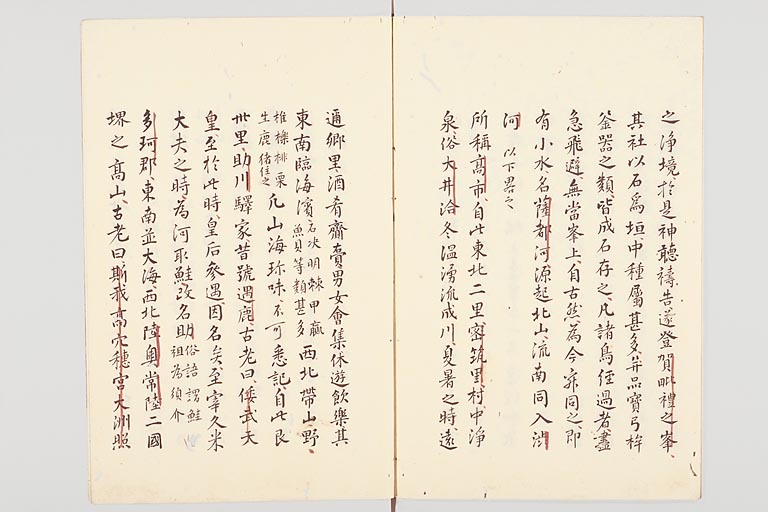 之浄境於是神聴禱告遂登賀毗禮之峯
其社以石爲垣中種屬甚多并品寶弓桙
釜器之類皆成石存之凡諸鳥經過者盡
急飛避無當峯上自古然爲今亦同之即
有小水名薩都河源起北山流南同入
河以下畧之
所稱髙市自此東北二里密筑里村中浄
泉俗大井洽冬温湧流成川夏暑之時遠
邇郷里酒肴齎賚男女會集休遊飲樂其
東南臨海濱石决明棘甲蠃魚貝等類甚多西北帶山野
椎櫟榧栗生鹿猪住之凡山海珎味不可悉記自此艮
卅里助川驛家昔號遇鹿古老曰倭武天
皇至於此時皇后參遇因名矣至宰久米
大夫之時爲河取鮭改名助俗語謂鮭祖爲須介
多珂郡東南並大海西北陸奥常陸二國
堺之髙山古老曰斯我髙穴穗宮大洲照